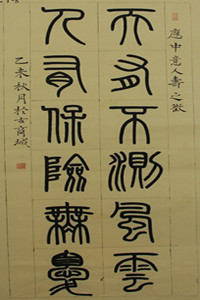 應中意人壽之徵
天有不測風雲
人有保險無憂
乙未秋月於古商城